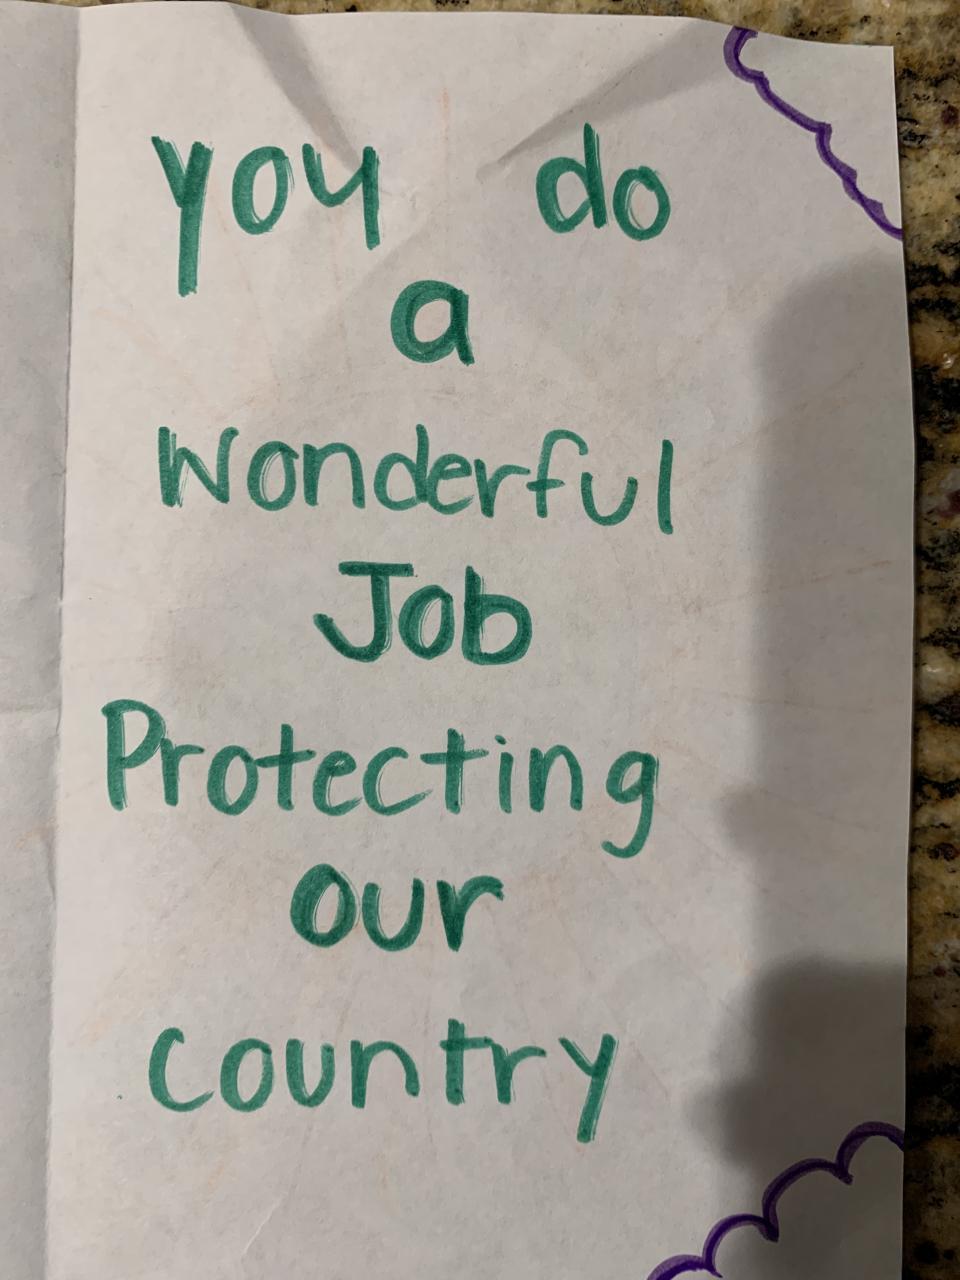 you do
a
Wonderful
Job
Protecting
our
country